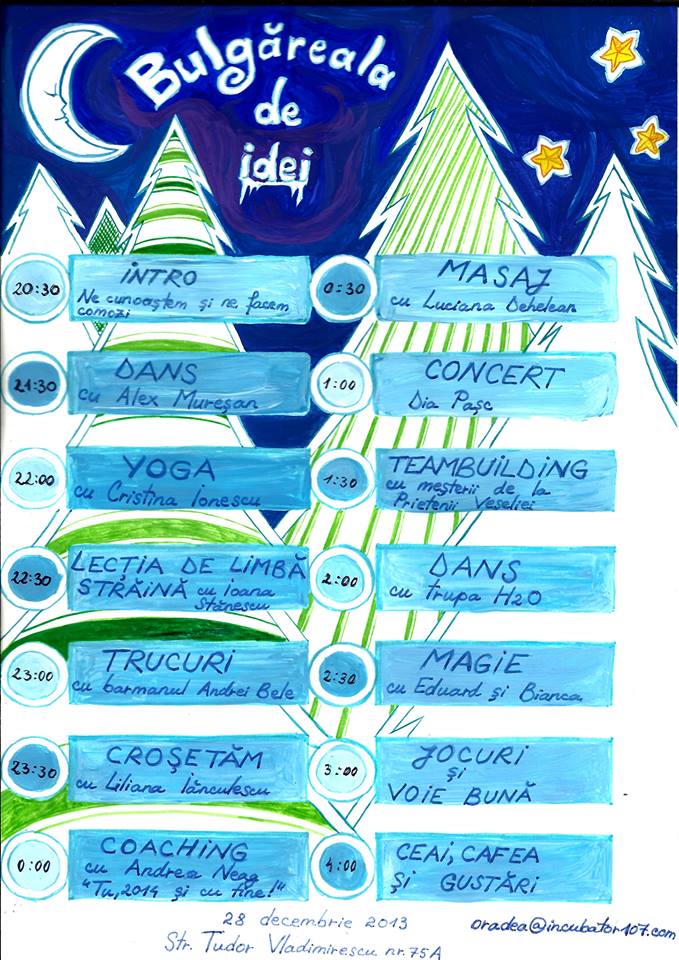 Bulgăreala
de
idei
20:30
INTRO
Ne cunoaștem și ne facem
comozi
21:30
DANS
cu Alex Mureșan
22:00
YOGA
cu Cristina Ionescu
22:30
LECȚIA DE LIMBĂ
STRĂINĂ cu Ioana
Stănescu
23:00
TRUCURI
cu barmanul Andrei Bele
23:30
CROȘETĂM
cu Liliana Iănculescu
0:00
COACHING
cu Andreea Neag
"Tu, 2014 și cu tine!"
0:30
MASAJ
cu Luciana Dehelean
1:00
CONCERT
Dia Pașc
1:30
TEAMBUILDING
cu meșterii de la
Prietenii Veseliei
2:00
DANS
cu trupa H2O
2:30
MAGIE
cu Eduard și Bianca
3:00
JOCURI
și
VOIE BUNĂ
4:00
CEAI, CAFEA
ȘI GUSTĂRI
28 decembrie 2013
Str. Tudor Vladimirescu nr. 75A
oradea@incubator107.com